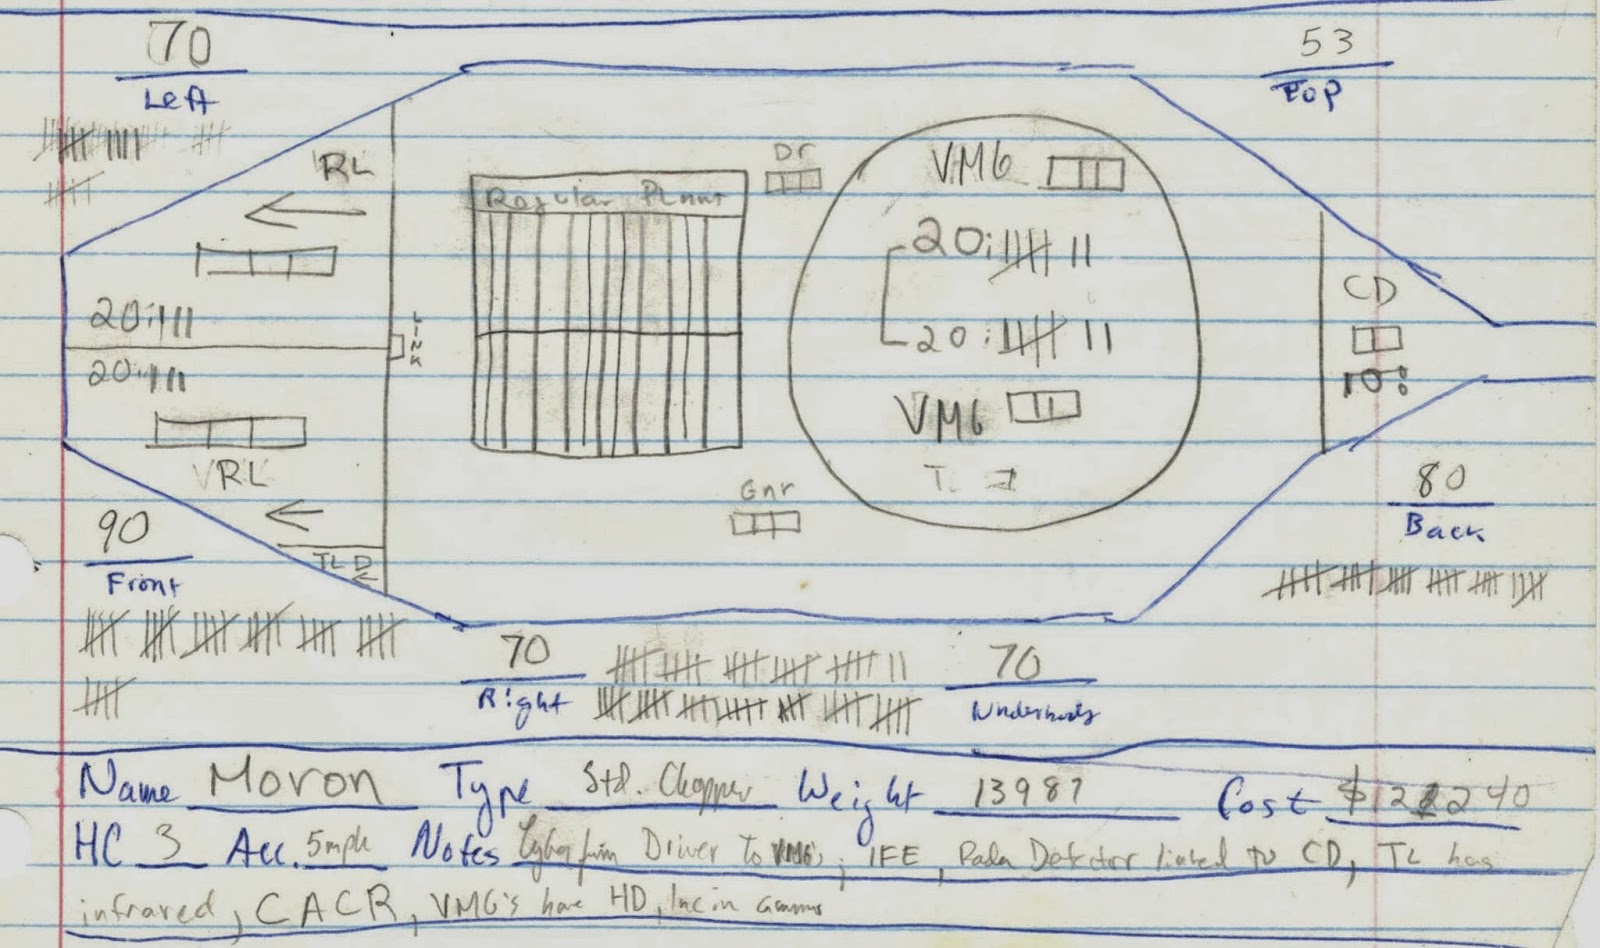 70
Left
53
Top
RL
Dr
VMG
Regular Plant
20:
20:
CD
20:
Link
20:
10:
VMG
VRL
T.
80
Back
Gnr
90
Front
TLD
70
Right
70
Underbody
Name Moron Type Std. Chopper Weight 13987 Cost
HC 3 Acc. 5mph Notes Driver to VMG's, IFE, Radar Detector linked to CD, TL has
infrared, CACR, VMG's have HD, Inc in